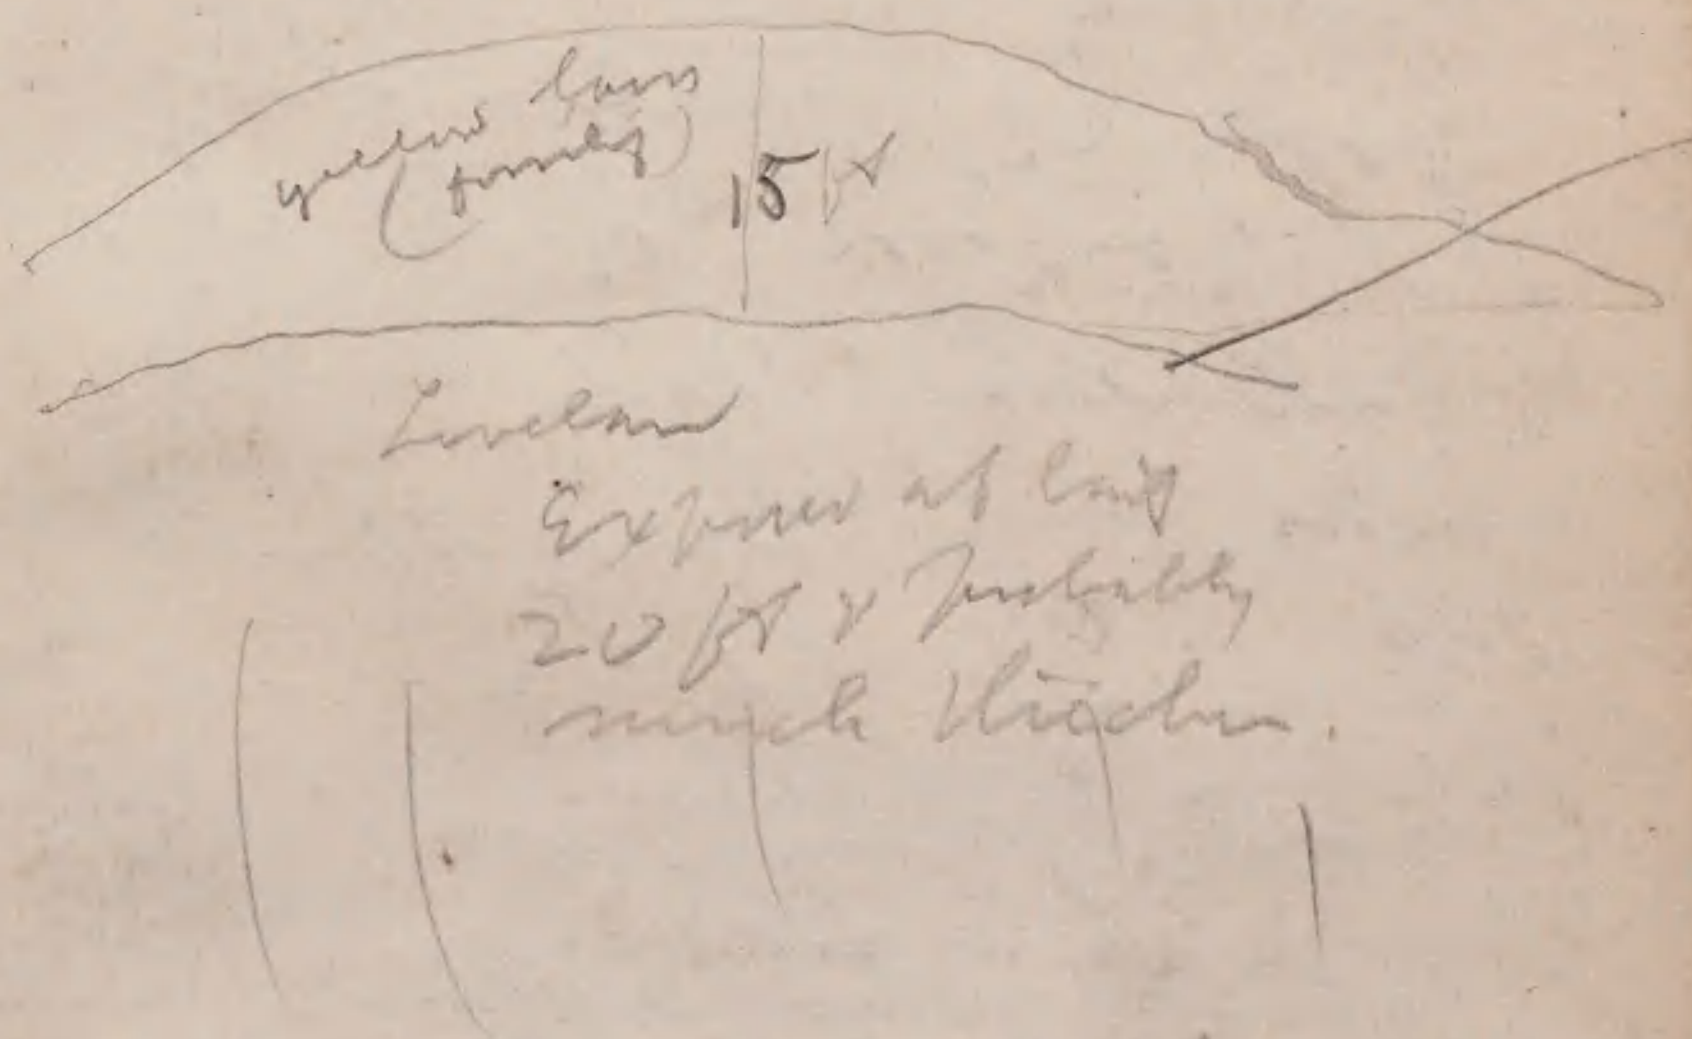 yellow loess
(fossils)
15 ft
Loveland
Exposed at least
20 ft & probably
much thicker.